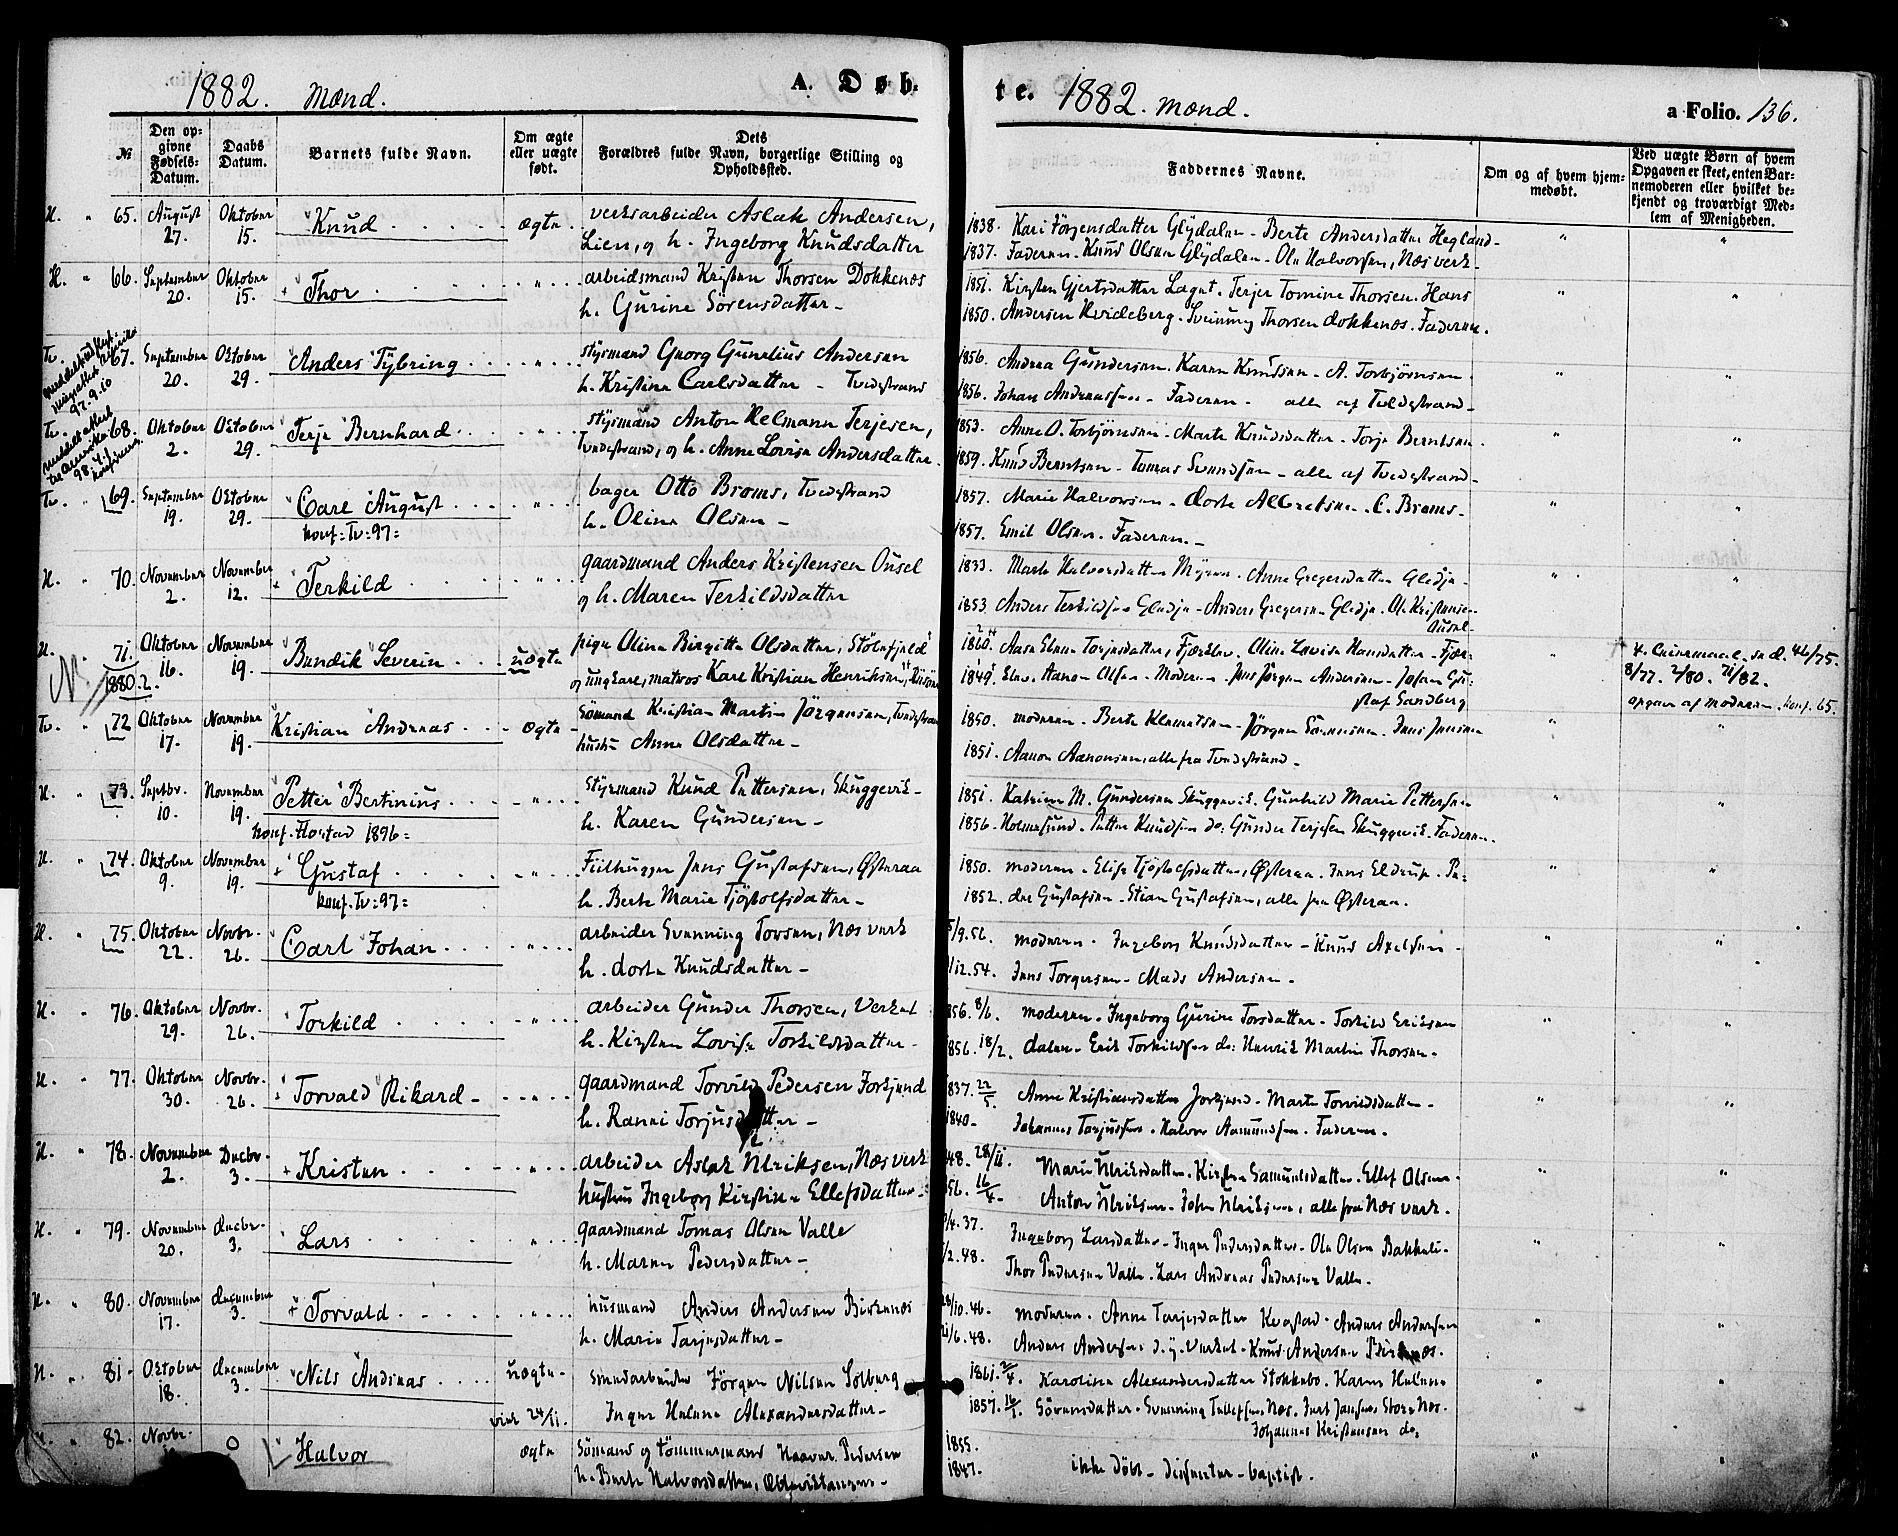 1882. Mænd. A. Døb-
te. 1882. Mænd. a Folio. 136.
№
Den op-
givne
Fødsels-
Datum.
Daabs
Datum.
Barnets fulde Navn.
Om ægte
eller uægte
født.
Dets
Forældres fulde Navn, borgerlige Stilling og
Opholdssted.
Faddernes Navne.
Om og af hvem hjem-
medøbt.
Ved uægte Børn af hvem
Opgaven er skeet, enten Bar-
nemoderen eller hvilket be-
kjendt og troværdigt Med-
lem af Menigheden.
H. " 65. August 27. Oktober 15. Knud ægte. verksarbeider Aslak Andersen,
Lien, og h. Ingeborg Knudsdatter
1838. Kari Jørgensdatter Glydalen - Berte Andersdatter Hegland -
1837. Faderen - Knud Olsen Glydalen - Ole Halvorsen, Næs verk -
H. " 66. September 20. Oktober 15. Thor " arbeidsmand Kristen Thorsen Dokkenæs
h. Gurine Sørensdatter -
1851. Kirsten Gjertsdatter Laget. Terjer Tomine Thorsen. Hans
1850. Andersen Kvideberg. Sveinung Thorsen Dokkenæs. Faderen.
Tv. 67. September 20. Oktober 29. Anders Tybring " styrmand Georg Gunelius Andersen
h. Kristine Carlsdatter - Tvedestrand
1856. Andrea Gundersen. Karen Knudsen - A. Torbjørnsen
1856. Johan Andreassen - Faderen - alle af Tvedestrand -
Tv. 68. Oktober 2. Oktober 29. Terje Bernhard " styrmand Anton Helmann Terjesen,
Tvedestrand, og h. Anne Lovise Andersdatter.
1853. Anne O. Torbjørnsen - Marte Knudsdatter - Terje Berntsen
1859. Knud Berntsen - Tomas Svendsen - alle af Tvedestrand -
Tv. " 69. September 19. Oktober 29. Carl August " bager Otto Broms, Tvedestrand
konf: Tv: 97= h. Oline Olsen -
1857. Marie Halvorsen - Dorte Albretsen - C. Broms -
1857. Emil Olsen. Faderen. -
H. " 70. November 2. November 12. Terkild " gaardmand Anders Kristensen Ousel
og h. Maren Terkildsdatter
1833. Marte Halvorsdatter Myren. Anne Gregersdatter Gledje -
1853. Anders Terkildsen Gledje - Anders Gregersen Gledje. Ole Kristensen
Ousel -
H. " 71. Oktober 16. November 19. Bendik Severin uægte pige Oline Birgitte Olsdatter, Stølefjeld
1880.2. og ungkarl, matros Karl Kristian Henriksen,
1860. Aase Elene Terjesdatter, Fjærklev. Oline Lovise Hansdatter - Fjær-
1849. Elev. Aanon Olsen - Moderen - Jens Jørgen Andersen - Johan Gu-
staf Sandberg
4. Leiermaal. se d. 46/75.
8/77. 2/80. 71/82.
opgave af moderen. Konf. 65.
Tv. " 72 Oktober 17. November 19. Kristian Andreas ægte Sømand Kristian Martin Jørgensen, Tvedestrand
hustru Anne Olsdatter -
1850. moderen - Berte Klemetsen - Jørgen Sørensen. Jens Jensen
1851. Aanon Aanonsen, alle fra Tvedestrand -
H. " 73. Septbr. 10. November 19. Petter Bertinius " Styrmand Knud Pettersen, Skuggevik -
konf. Flostad 1896= h. Karen Gundersen -
1851. Katrine M. Gundersen Skuggevik. Gunhild Marie Pettersen
1856. Holmesund. Petter Knudsen do: Gunder Terjesen Skuggevik. Faderen.
H. " 74. Oktober 9. November 19. Gustaf " Fiilhugger Jens Gustafsen, Østeraa
konf. Tv: 97= h. Berte Marie Tjøstolfsdatter -
1850. moderen - Elise Tjøstolfsdatter, Østeraa. Jens Eldrup. Pe-
1852. der Gustafsen - Stian Gustafsen, alle fra Østeraa.
H. " 75. Oktober 22. Novbr. 26. Carl Johan " arbeider Svenning Tovsen, Næs verk
h. Dorte Knudsdatter -
5/9.56. moderen. Ingeborg Knudsdatter - Knud Axelsen -
/12.54. Jens Torgersen - Mads Andersen -
H. " 76. Oktober 29. Novbr. 26. Torkild " arbeider Gunder Thorsen, Verket
h. Kirsten Lovise Torkildsdatter -
856. 8/6. moderen - Ingeborg Gurine Torsdatter - Torkild Eriksen
856. 18/2. dalen - Erik Torkildsen do: Henrik Martin Thorsen -
H. " 77. Oktober 30. Novbr. 26. Torvald Rikard - " gaardmand Torvild Pedersen Jorkjend
h. Ranei Torjusdatter -
837. 22/5. Anne Kristiansdatter Jorkjend - Marte Torvildsdatter -
1840- Johannes Torjussen. Halvor Aamundsen. Faderen.
H. " 78. November 2. Decbr. 3. Kristen " arbeider Aslak Ulriksen, Næs verk
hustru Ingeborg Kirstine Ellefsdatter -
48. 28/11. Marie Ulriksdatter. Kirsten Samuelsdatter. Ellef Olsen.
56. 16/4- Anton Ulriksen. John Ulriksen, alle fra Næs verk.
H. " 79. November 20. Decbr. 3. Lars " gaardmand Tomas Olsen Valle
h. Maren Pedersdatter -
/4.37. Ingeborg Larsdatter - Inger Pedersdatter - Ole Olsen Bakkeli -
/2.48. Thor Pedersen Valle. Lars Andreas Pedersen Valle.
H. " 80. November 17. December 3. Torvald " husmand Anders Andersen Birkenæs
h. Marie Tarjesdatter -
28/10.46. moderen. Anne Tarjesdatter Kvastad. Anders Andersen
/6.48. Anders Andersen d.y. Verket. Knud Andersen Birkenæs.
H. " 81. Oktober 18. December 3. Nils Andreas uægte Smedarbeider Jørgen Nilsen Solberg
viet 24/11. Inger Helene Alexandersdatter -
1861. 2/4. Karoline Alexandersdatter Stokkebo. Karen Helene
1857. 16/1. Sørensdatter. Svenning Tellefsen Næs. Jens Jensen Store Næs.
Johannes Kristensen do:
H. " 82. Novbr. 0 Halvor ægte Sømand og tømmermand Haaver Pedersen
h. Berte Halvorsdatter,
1855.
1847. ikke døbt - dissenter - baptist.